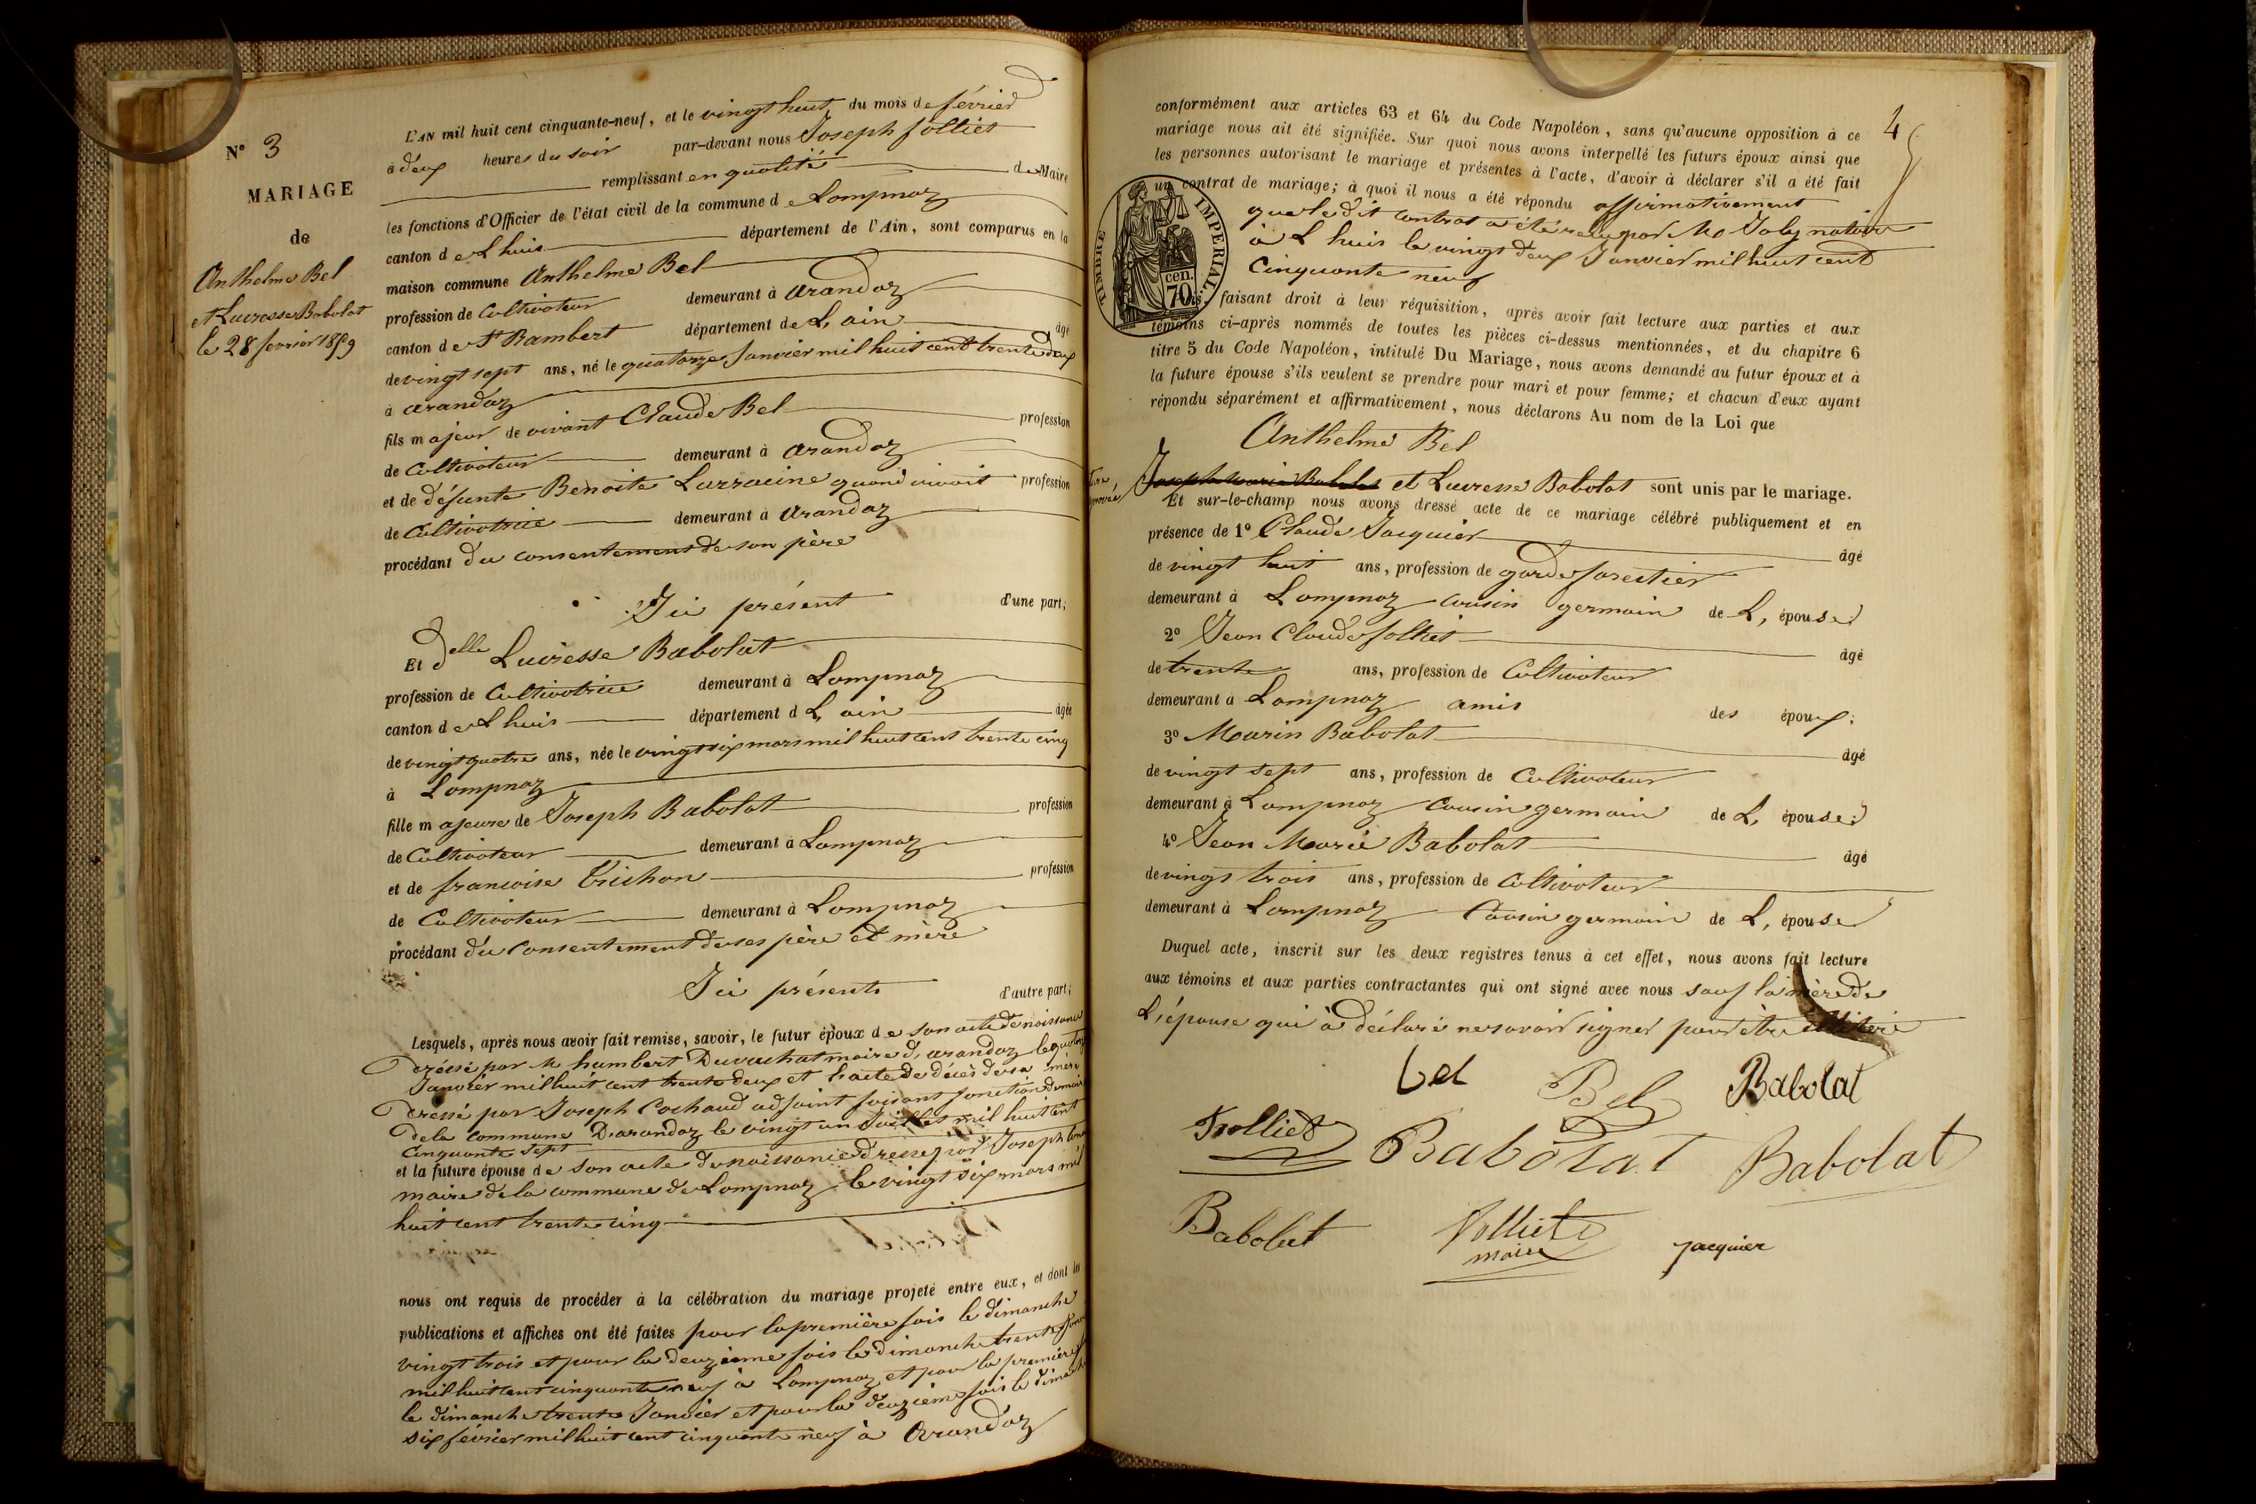 N° 3
MARIAGE
de
Anthelme Bel
et Lucresse Babolat
le 28 fevrier 1859
L'AN mil huit cent cinquante-neuf, et le vingt huit du mois de février
à deux heures du soir par-devant nous Joseph folliet
remplissant en qualité de Maire
les fonctions d'Officier de l'état civil de la commune de Lompnaz
canton de Lhuis département de l'Ain, sont comparus en la
maison commune Anthelme Bel
profession de Cultivateur demeurant à Arandaz
canton de St Rambert département de L'ain âgé
de vingt sept ans, né le quatorze Janvier mil huit cent trente deux
à arandaz
fils majeur de vivant Claude Bel profession
de Cultivateur demeurant à Arandaz
et de défunte Benoite Larracine quand vivait profession
de Cultivatrice demeurant à Arandaz
procédant du consentement de son père
Ici présent d'une part;
Et delle Lucresse Babolat
profession de Cultivatrice demeurant à Lompnaz
canton de Lhuis département d L'ain âgée
de vingt quatre ans, née le vingt six mars mil huit cent trente cinq
à Lompnaz
fille majeure de Joseph Babolat profession
de Cultivateur demeurant à Lompnaz
et de francoise Trichon profession
de Cultivateur demeurant à Lompnaz
procédant du Consentement de ses père et mère
Ici présents d'autre part;
Lesquels, après nous avoir fait remise, savoir, le futur époux de son acte de naissance
dréssé par M humbert Duvachat maire d'arandaz le quatorze
Janvier mil huit cent trente deux et l'acte de décès de sa mère
dréssé par Joseph Cochaud adjoint faisant fonction de maire
de la commune D'arandaz le vingt un Juillet mil huit cent
Cinquante sept
et la future épouse de son acte de naissance dréssé par Joseph
maire de la commune de Lompnaz le vingt six mars mil
huit cent trente cinq
nous ont requis de procéder à la célébration du mariage projeté entre eux, et dont les
publications et affiches ont été faites pour la première fois le dimanche
vingt trois et pour la deuzième fois le dimanche trente Janvier
mil huit cent cinquante neuf à Lompnaz et pour la première fois
le dimanche trente Janvier et pour la deuzième fois le dimanche
six février mil huit cent cinquante neuf à Arandaz
4
conformément aux articles 63 et 64 du Code Napoléon, sans qu'aucune opposition à ce
mariage nous ait été signifiée. Sur quoi nous avons interpellé les futurs époux ainsi que
les personnes autorisant le mariage et présentes à l'acte, d'avoir à déclarer s'il a été fait
un contrat de mariage; à quoi il nous a été répondu affirmativement
que le dit contrat a été reçu par Me Jaly notaire
à Lhuis le vingt deux Janvier mil huit cent
Cinquante neuf
TIMBRE IMPERIAL
70 cen.
faisant droit à leur réquisition, après avoir fait lecture aux parties et aux
témoins ci-après nommés de toutes les pièces ci-dessus mentionnées, et du chapitre 6
titre 5 du Code Napoléon, intitulé Du Mariage, nous avons demandé au futur époux et à
la future épouse s'ils veulent se prendre pour mari et pour femme; et chacun d'eux ayant
répondu séparément et affirmativement, nous déclarons Au nom de la Loi que
Anthelme Bel
et Lucresse Babolat sont unis par le mariage.
Et sur-le-champ nous avons dressé acte de ce mariage célébré publiquement et en
présence de 1° Claude Jacquier âgé
de vingt huit ans, profession de garde forestier
demeurant à Lompnaz cousin germain de L, épouse
2° Jean Claude folliet âgé
de trente ans, profession de Cultivateur
demeurant à Lompnaz amis des époux;
3° Marin Babolat âgé
de vingt sept ans, profession de Cultivateur
demeurant à Lompnaz Cousin germain de L, épouse;
4° Jean Marie Babolat âgé
de vingt trois ans, profession de Cultivateur
demeurant à Lompnaz Cousin germain de L, épouse
Duquel acte, inscrit sur les deux registres tenus à cet effet, nous avons fait lecture
aux témoins et aux parties contractantes qui ont signé avec nous sauf la mère de
L'épouse qui à déclaré ne savoir signer pour être illiterée
bel Bel Babolat
Trolliet Babolat Babolat
Babolat folliet maire jacquier